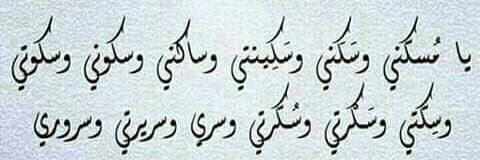 يا مُسكّني وسَكَني وسَكِينتي وساكني وسكوني وسكوتي
وسِكّتي وسَكْرتي وسُكّرتي وسري وسريرتي وسروري